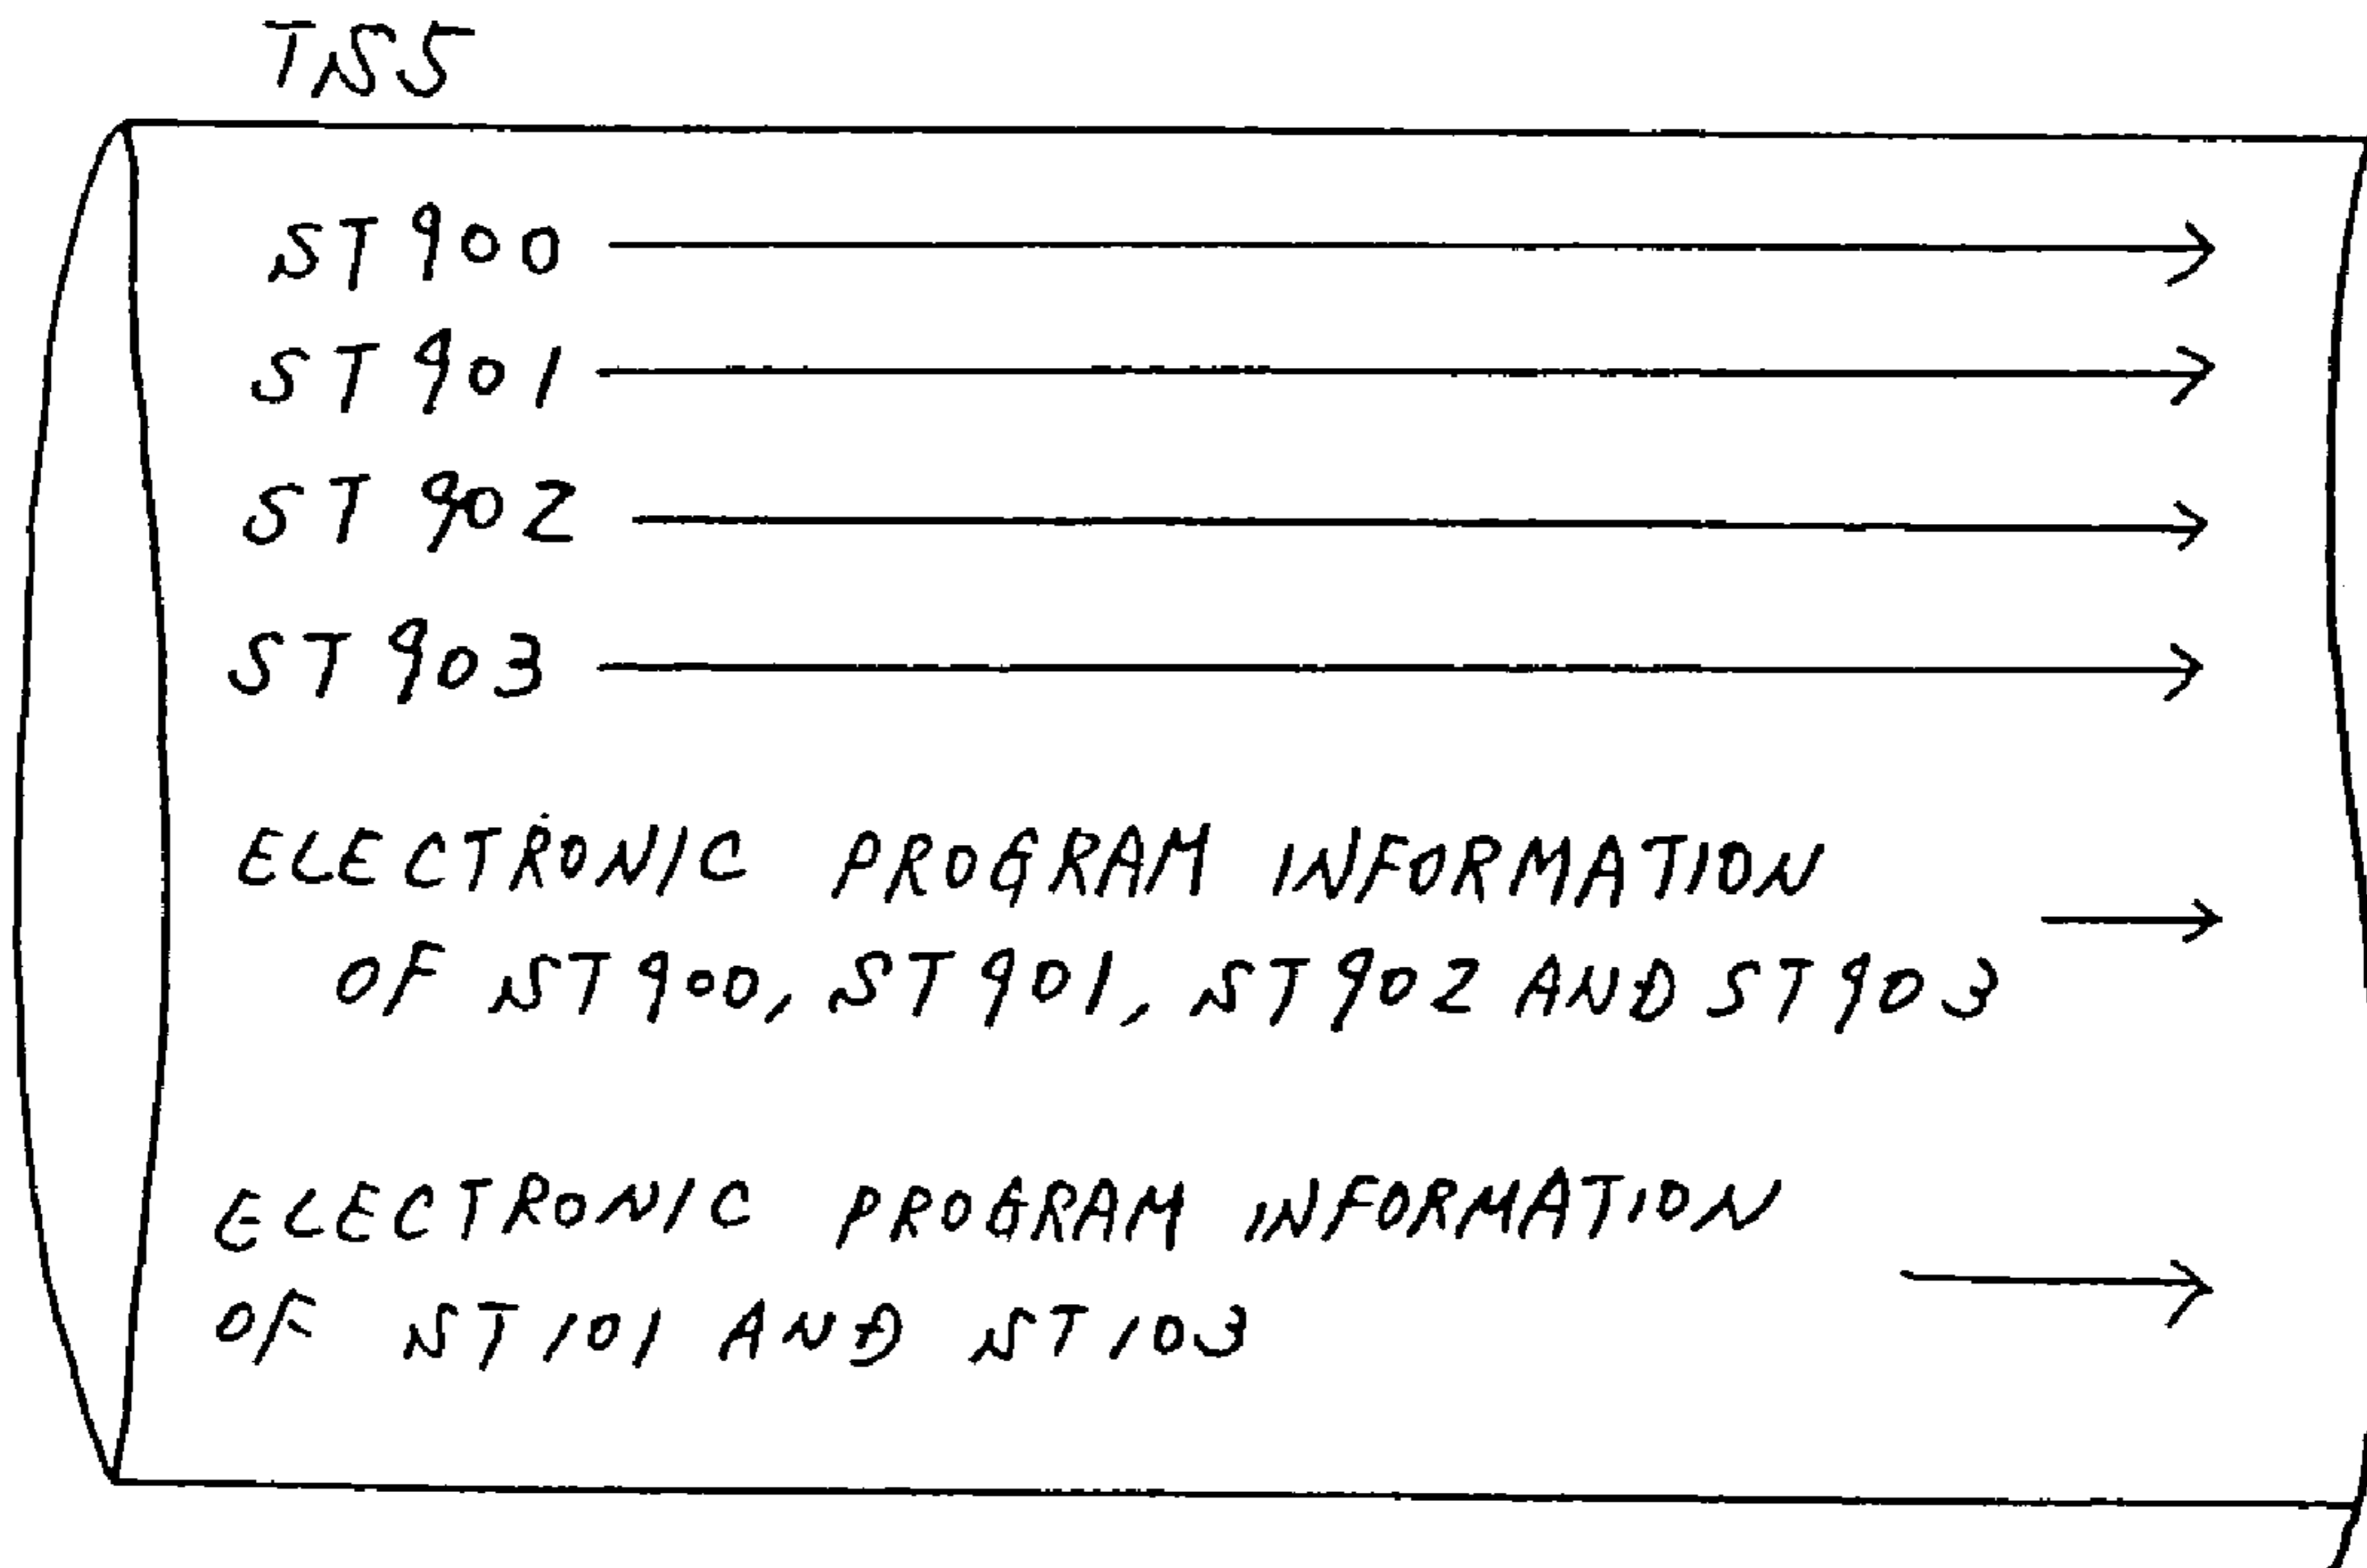 TS5
ST900
ST901
ST902
ST903
ELECTRONIC PROGRAM INFORMATION
OF ST900, ST901, ST902 AND ST903
ELECTRONIC PROGRAM INFORMATION
OF ST101 AND ST103